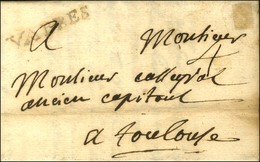 VABRES
A Monsieur
4
Monsieur
ancien capitoul
a toulouse